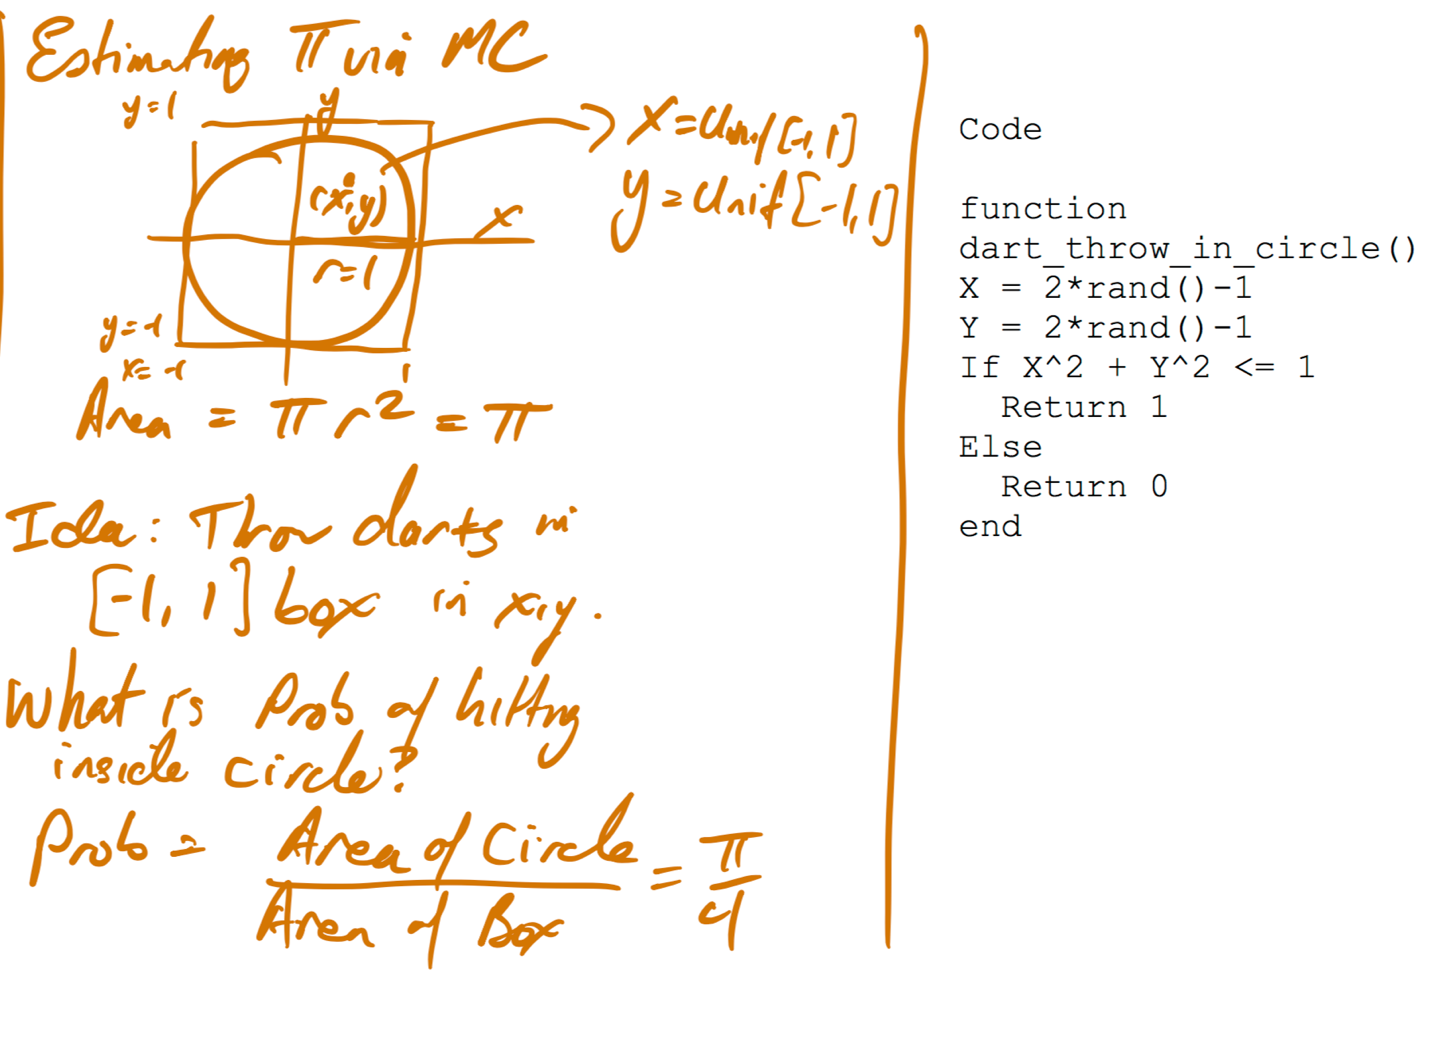 Estimating π via MC
y=1
y
X=Unif[-1,1]
y=Unif[-1,1]
(x,y)
x
r=1
y=-1
x=-1
1
Area = πr² = π
Idea: Throw darts in
[-1, 1] box in x,y.
What is Prob of hitting
inside circle?
Prob = Area of Circle / Area of Box = π/4
Code
function
dart_throw_in_circle()
X = 2*rand()-1
Y = 2*rand()-1
If X^2 + Y^2 <= 1
Return 1
Else
Return 0
end